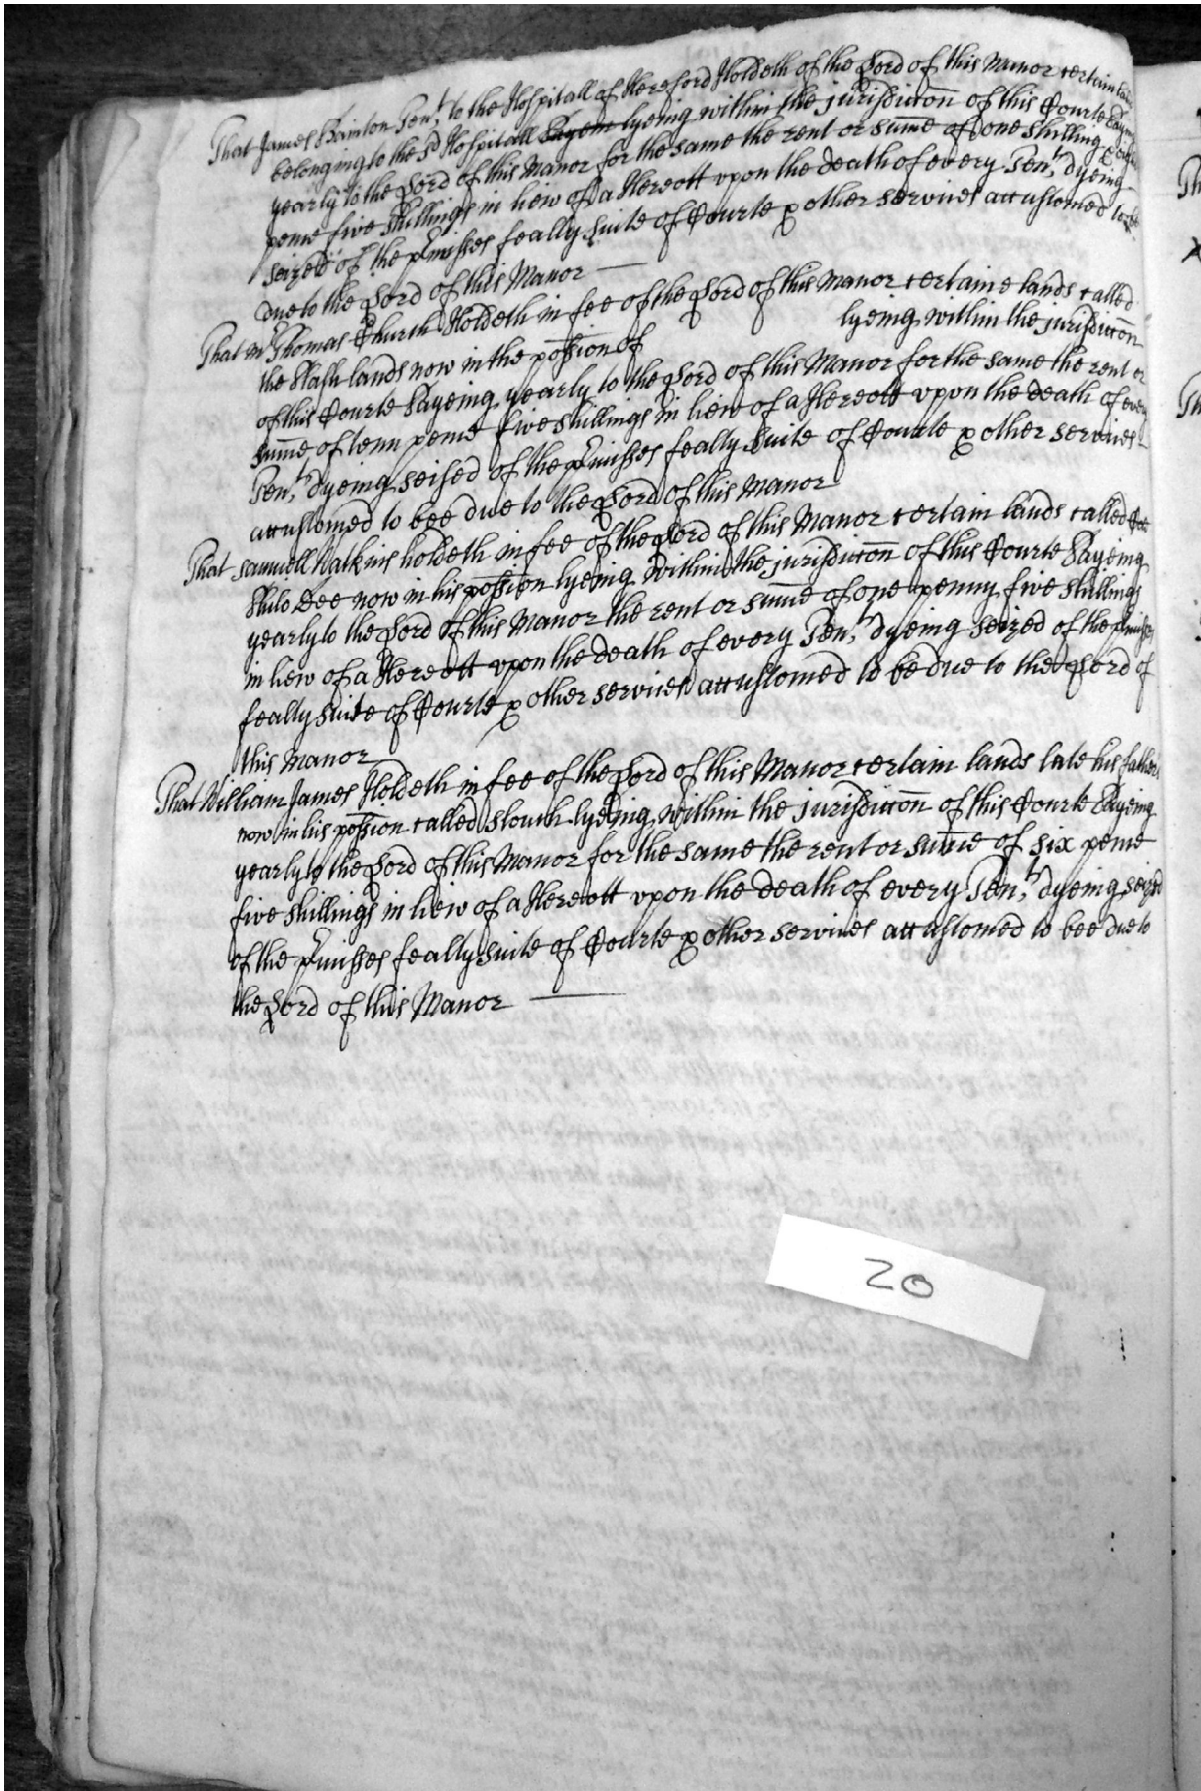 That James Bainton Ten.t to the Hospitall of Hereford Holdeth of the Lord of this Manor certain lands
belonging to the sd Hospitall lyeing within the jurisdiccōn of this Courte Payeing
yearly to the Lord of this Manor for the same the rent or sum̄e of one shilling &
pence five shillings in liew of a Hereott vpon the death of every Ten.t dyeing
seized of the p̄misses fealty suite of Courte & other services accustomed to be
due to the Lord of this Manor
That Mr Thomas Church Holdeth in fee of the Lord of this Manor certaine lands called
the Slash lands now in the possion of lyeing within the jurisdiccōn
of this Courte Payeing yearly to the Lord of this Manor for the same the rent or
sum̄e of tenn pence five shillings in liew of a Hereott vpon the death of every
Ten.t dyeing seised of the p̄misses fealty suite of Courte & other services
accustomed to bee due to the Lord of this Manor
That Samuell Watkins holdeth in fee of the Lord of this Manor certain lands called
now in his possion lyeing within the jurisdiccōn of this Courte Payeing
yearly to the Lord of this Manor the rent or sum̄e of one penny five shillings
in liew of a Hereott vpon the death of every Ten.t dyeing seized of the p̄misses
fealty suite of Courte & other services accustomed to be due to the Lord of
this Manor
That William James Holdeth in fee of the Lord of this Manor certain lands late his fathers
now in his possion called Slouch lyeing within the jurisdiccōn of this Courte Payeing
yearly to the Lord of this Manor for the same the rent or sum̄e of six pence
five shillings in liew of a Hereott vpon the death of every Ten.t dyeing seized
of the p̄misses fealty suite of Courte & other services accustomed to bee due to
the Lord of this Manor
20